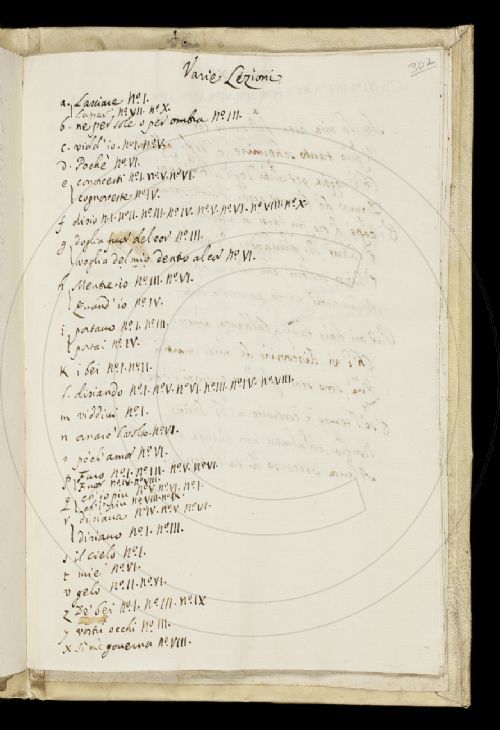 302
Varie Lezioni
a. Lasciare No I.
Lassar No VII. No X.
b. ne per sole o per ombra No III.
c. vidd' io. No I. No V.
d. Pochè No VI.
e conoscerti No I. No V. No VI.
cognoscerte No IV.
f disio No I. No II. No III. No IV. No V. No VI. No VIII. No X.
g doglia fuor del cor No III.
voglia del mio dentro al cor No VI.
h Mentre io No III. No VI.
Quand' io No IV.
i portano No I. No III.
porta i No IV.
K i bei No I. No II.
l. disiando No I. No V. No VI. No III. No IV. No VIII.
m viddini No I.
n No VI.
o poich' amor No VI.
p Furo No I. No III. No V. No VI.
Fuor No IV. No VIII.
q ch' io più No V. No VI. No I.
No VIII. No IX.
r disiava No IV. No V. No VI.
disiavo No I. No III.
s il cielo No I.
t mie No VI.
v gelo No II. No VI.
z De' bei No I. No III. No IX
y vostri occhi No III.
x governa No VIII.